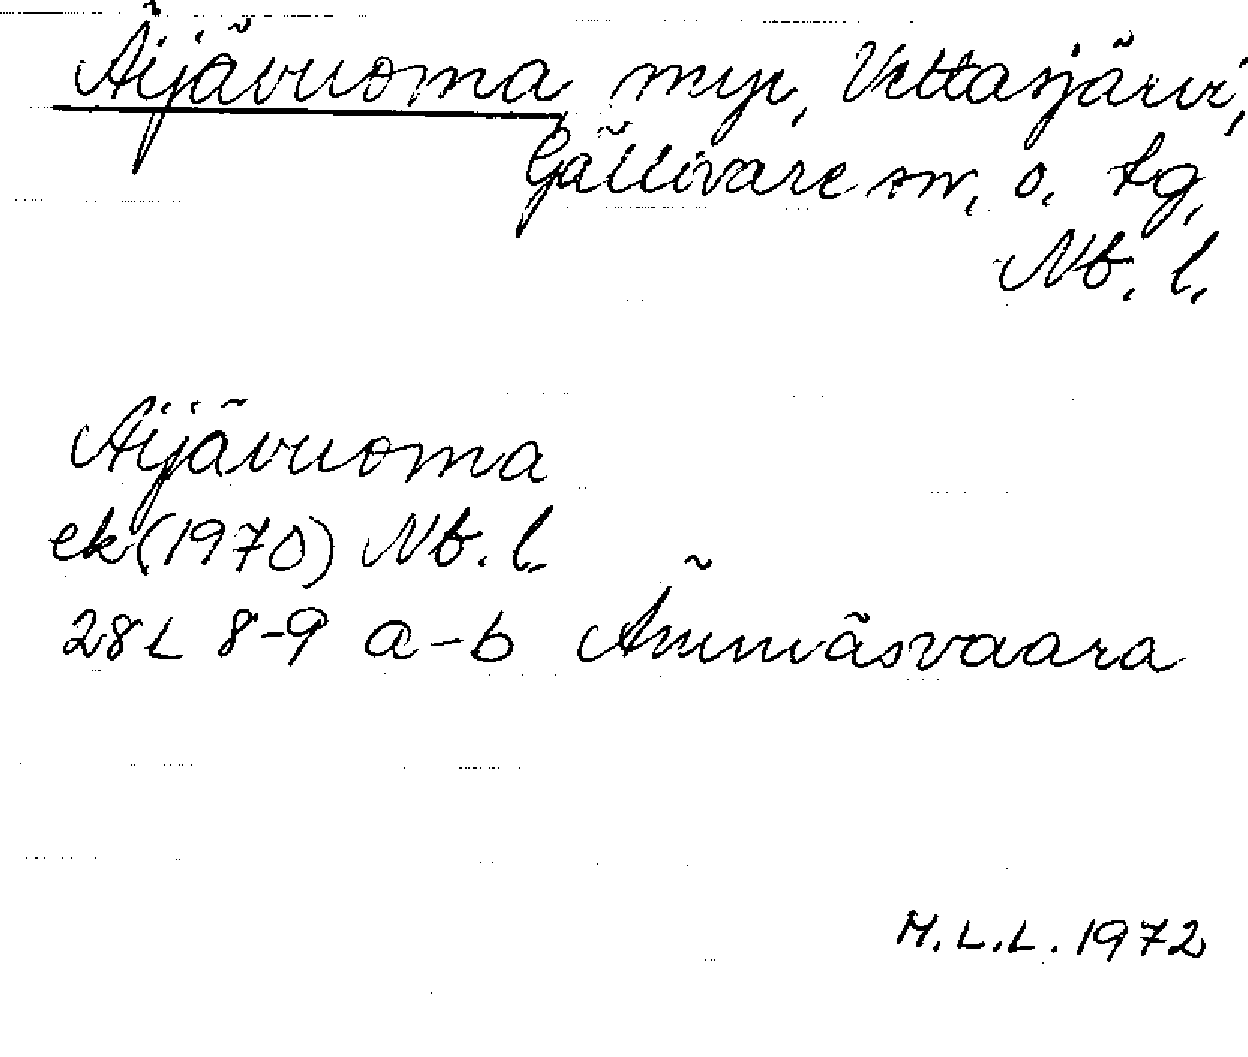 Äijävuoma myr, Vettasjärvi,
Gällivare sn, o. tg,
Nb. l.
Äijävuoma
ek (1970) Nb. l.
28L 8-9 a-b Ämmäsvaara
M.L.L. 1972